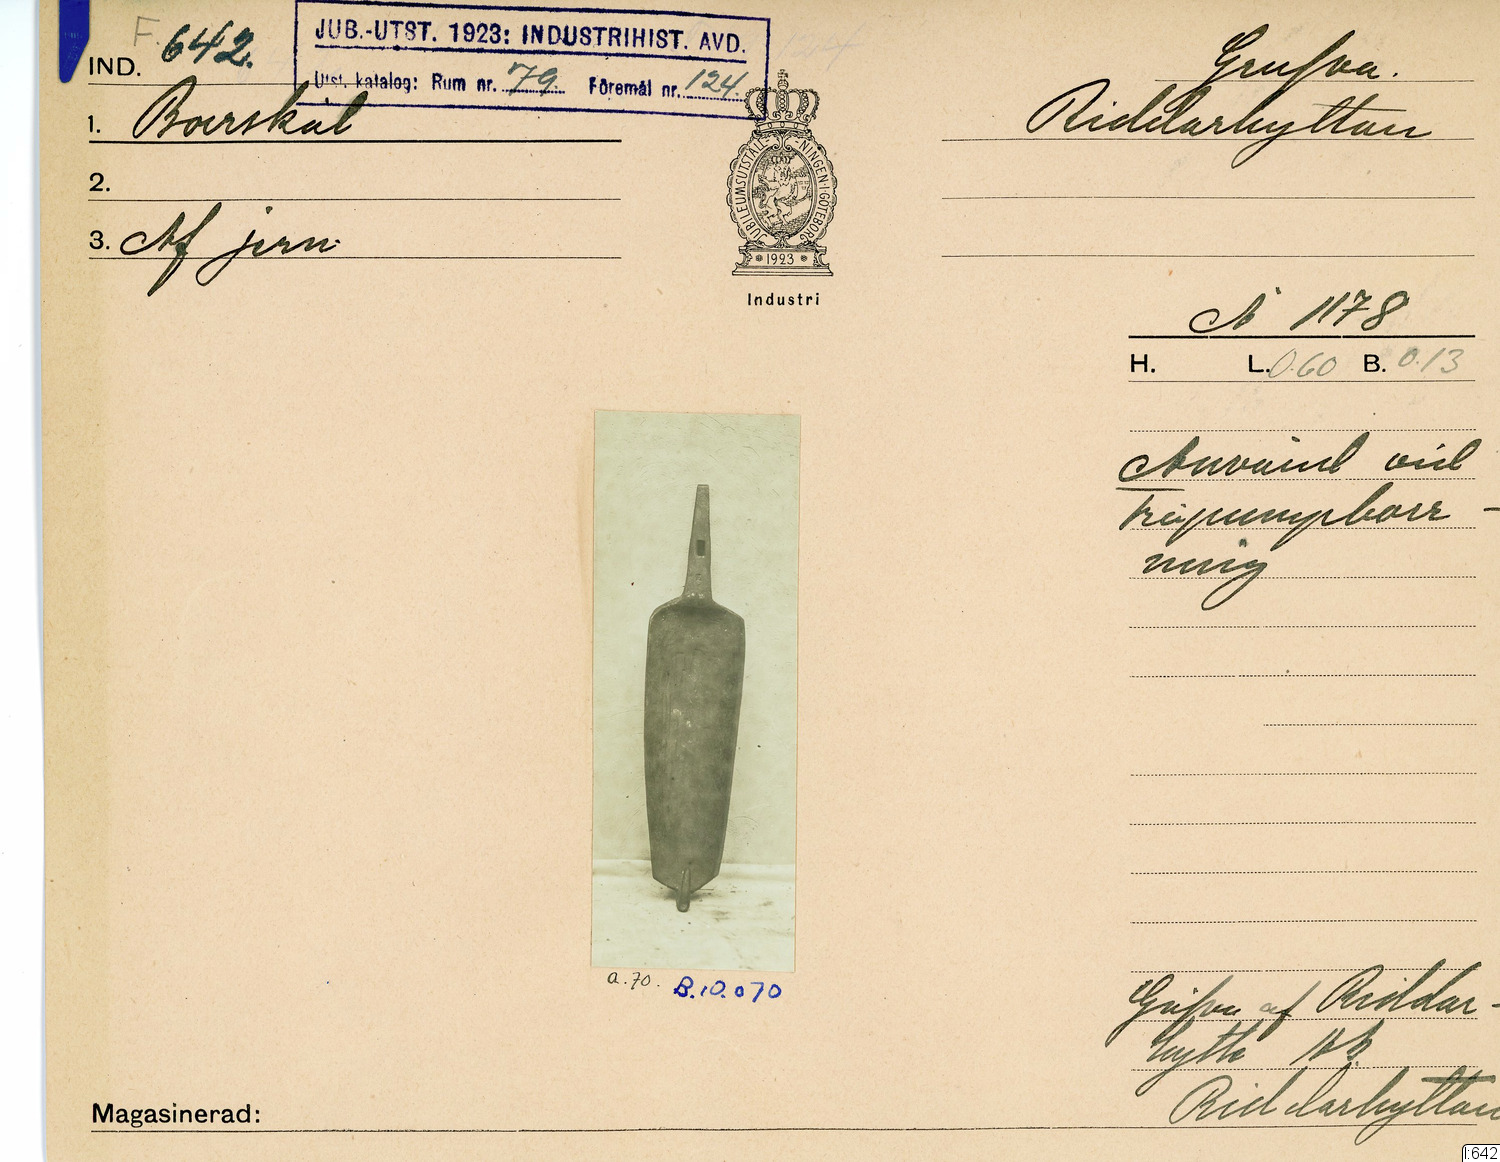 JUB.-UTST. 1923: INDUSTRIHIST. AVD.
Utst. katalog: Rum nr. 79. Föremål nr. 124.
F.
IND. 642.
Grufva.
1. Borrskål
Riddarhyttan
2.
3. Af jern
JUBILEUMSUTSTÄLLNINGEN I GÖTEBORG
1923
Industri
A 1178
H. L. 0.60 B. 0.13
Använd vid
Träpumpborr-
ning
a.70. B.10.070
Gåfva af Riddar-
hytte AB
Riddarhyttan
Magasinerad:
I:642